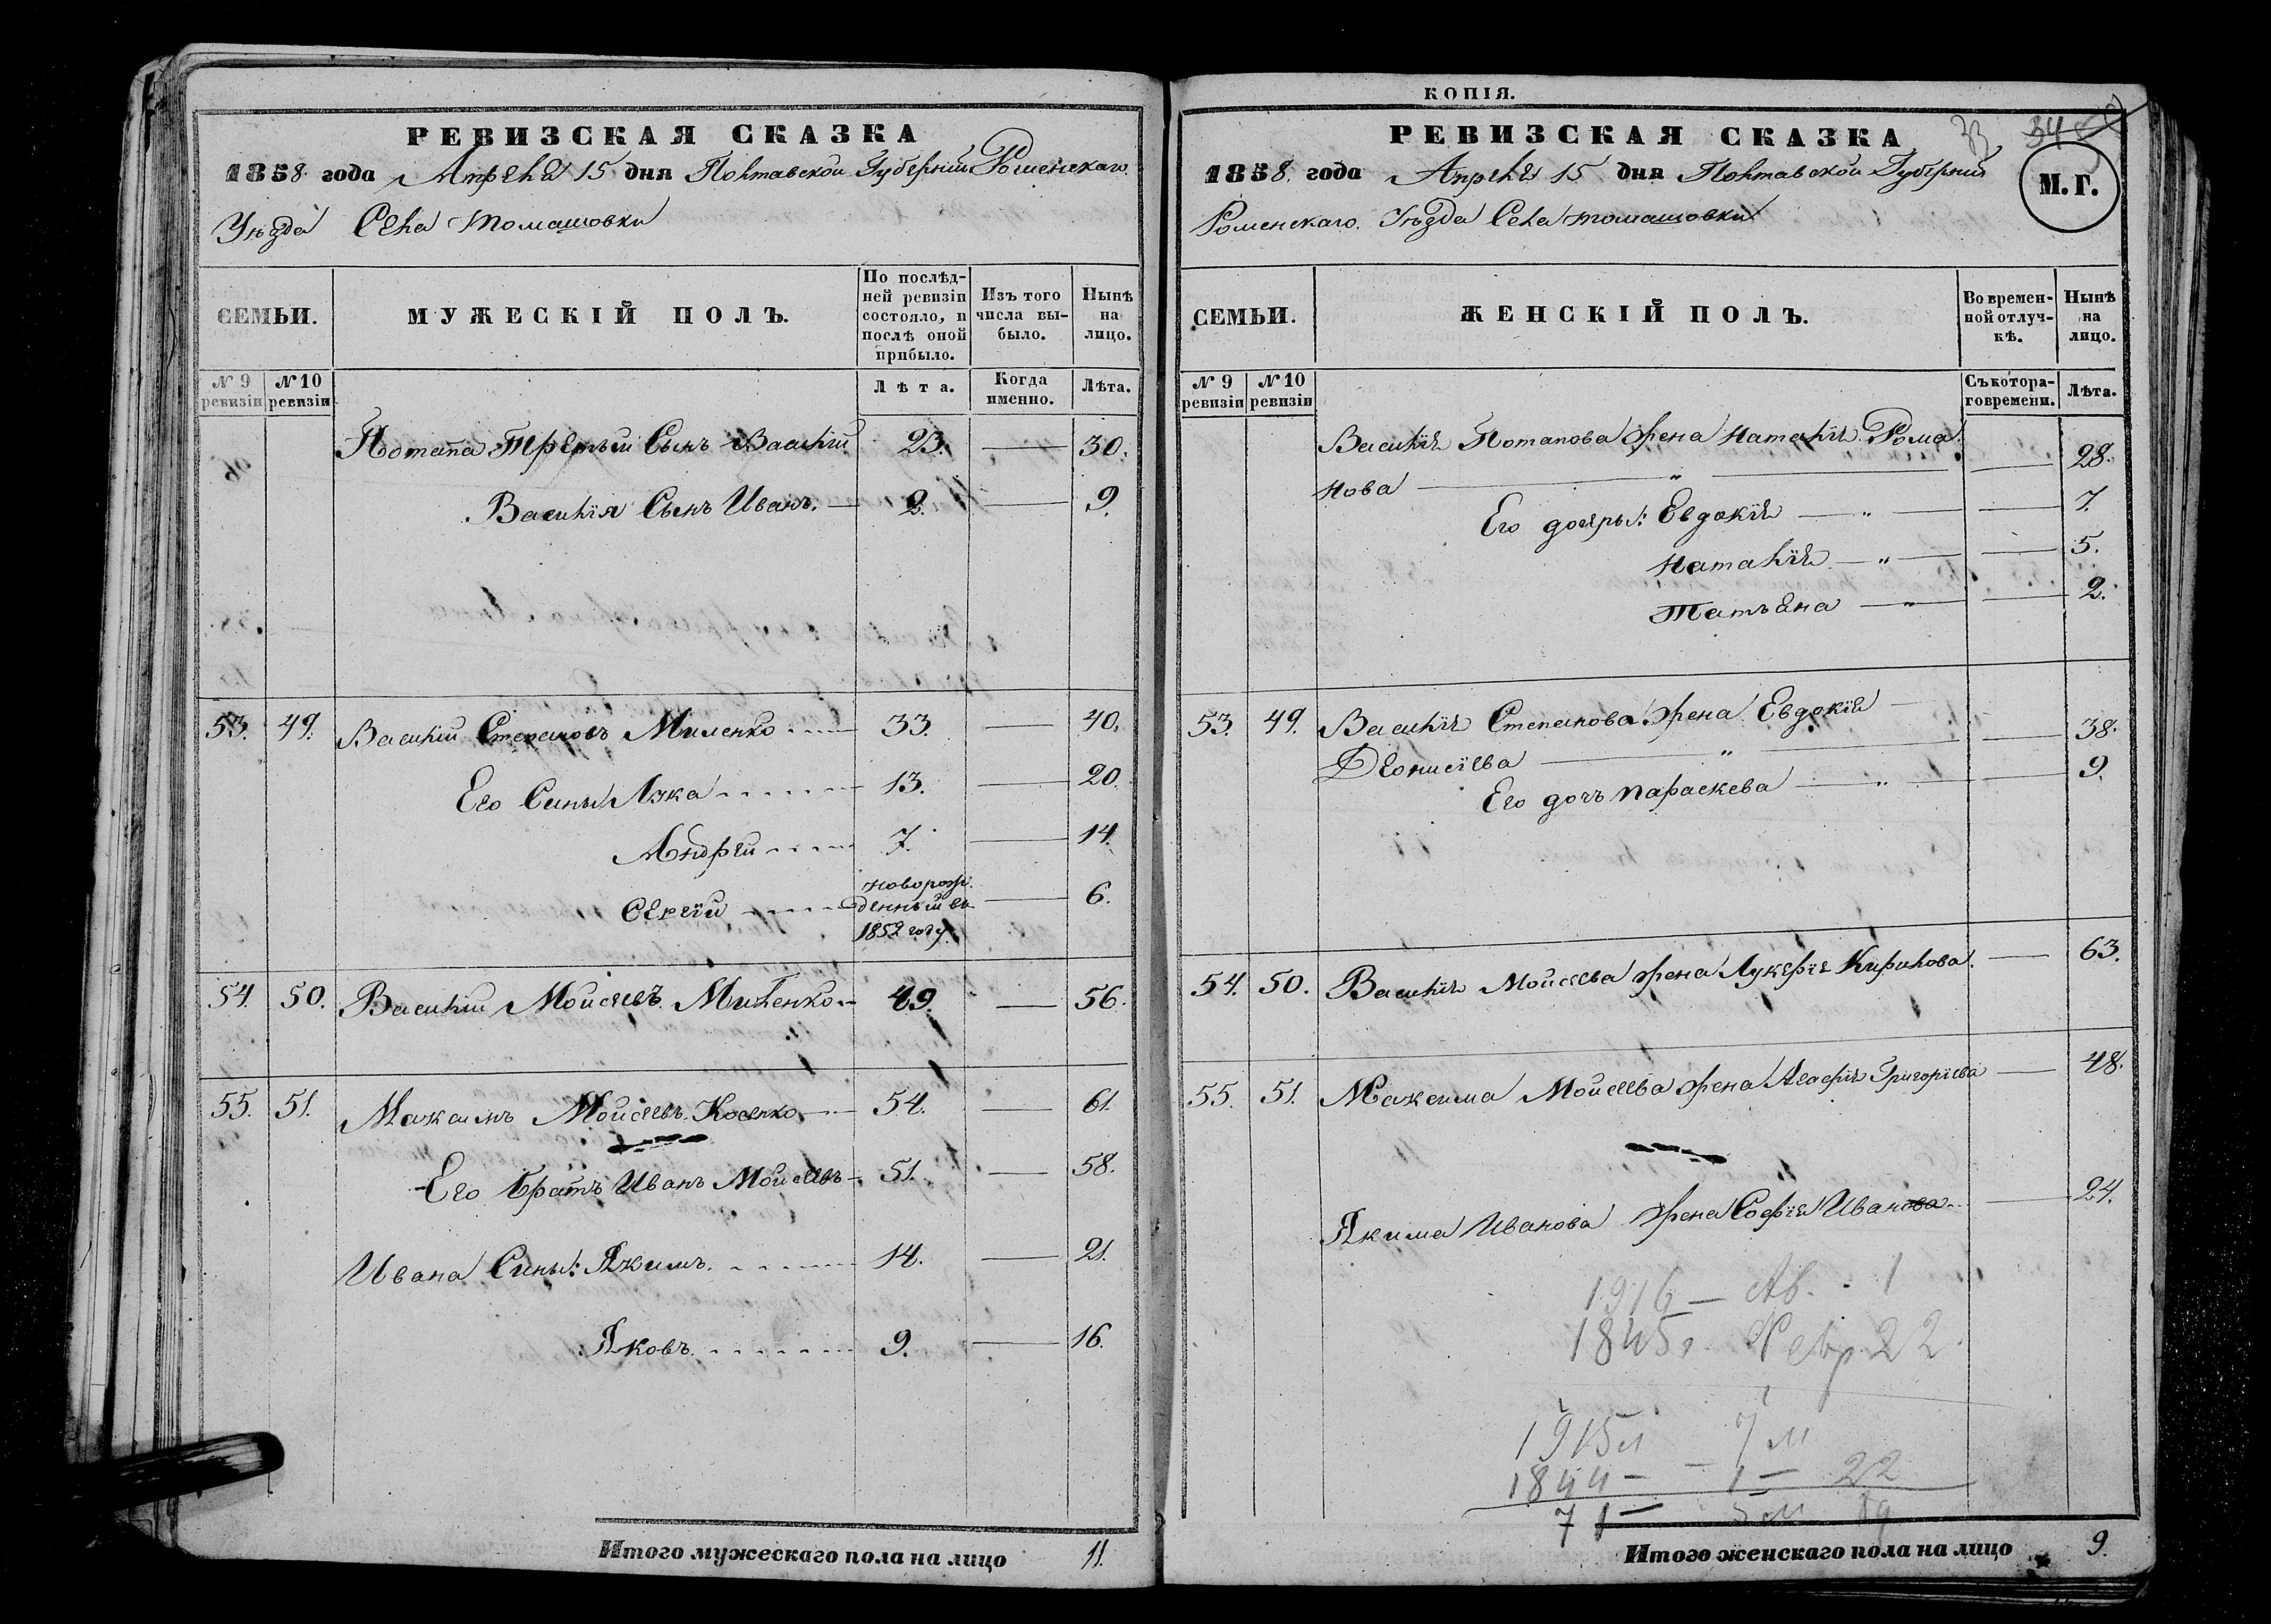 РЕВИЗСКАЯ СКАЗКА
1858 года Апреля 15 дня Полтавской Губерніи Роменскаго
Уѣзда Села Томашовки
СЕМЬИ.
МУЖЕСКІЙ ПОЛЪ.
По послѣд-
ней ревизіи
состояло, и
послѣ оной
прибыло.
Изъ того
числа вы-
было.
Нынѣ
на
лицо.
№ 9
ревизіи
№ 10
ревизіи
Лѣта.
Когда
именно.
Лѣта.
Потапа Третьій Сынъ Василій 23. 30.
Василія Сынъ Иванъ. 2. 9.
53. 49. Василій Степановъ Миленко 33. 40.
Его Сины Лука 13. 20.
Андрей 7. 14.
Сергій новорож-
денный въ
1852 году. 6.
54. 50. Василій Мойсеевъ Миленко 49. 56.
55. 51. Максимъ Мойсеевъ Косенко 54. 61.
Его братъ Иванъ Мойсеевъ 51. 58.
Ивана Сины: Якимъ. 14. 21.
Яковъ. 9. 16.
Итого мужескаго пола на лицо 11.
КОПІЯ.
РЕВИЗСКАЯ СКАЗКА
33 34
1858. года Апреля 15 дня Полтавской Губерніи
М. Г.
Роменскаго Уѣзда Села Томашовки
СЕМЬИ.
ЖЕНСКІЙ ПОЛЪ.
Во времен-
ной отлуч-
кѣ.
Нынѣ
на
лицо.
№ 9
ревизіи
№ 10
ревизіи
Съ котора-
го времени.
Лѣта.
Василія Потапова жена Наталія Рома-
нова 28.
Его дочеры: Евдокія 7.
Наталія 5.
Татьяна 2.
53. 49. Василія Степанова жена Евдокія
Деонисіева 38.
Его дочъ Параскева 9.
54. 50. Василія Мойсеева жена Лукерія Кирилова. 63.
55. 51. Максима Мойсеева жена Агафія Григоріева 48.
Якима Иванова жена Софія Иванова 24.
1916 — Ав. - 1
1845 Февр. 22
1915 — 7 м
1844 — 1 — 22
71 — 5 м
Итого женскаго пола на лицо 9.